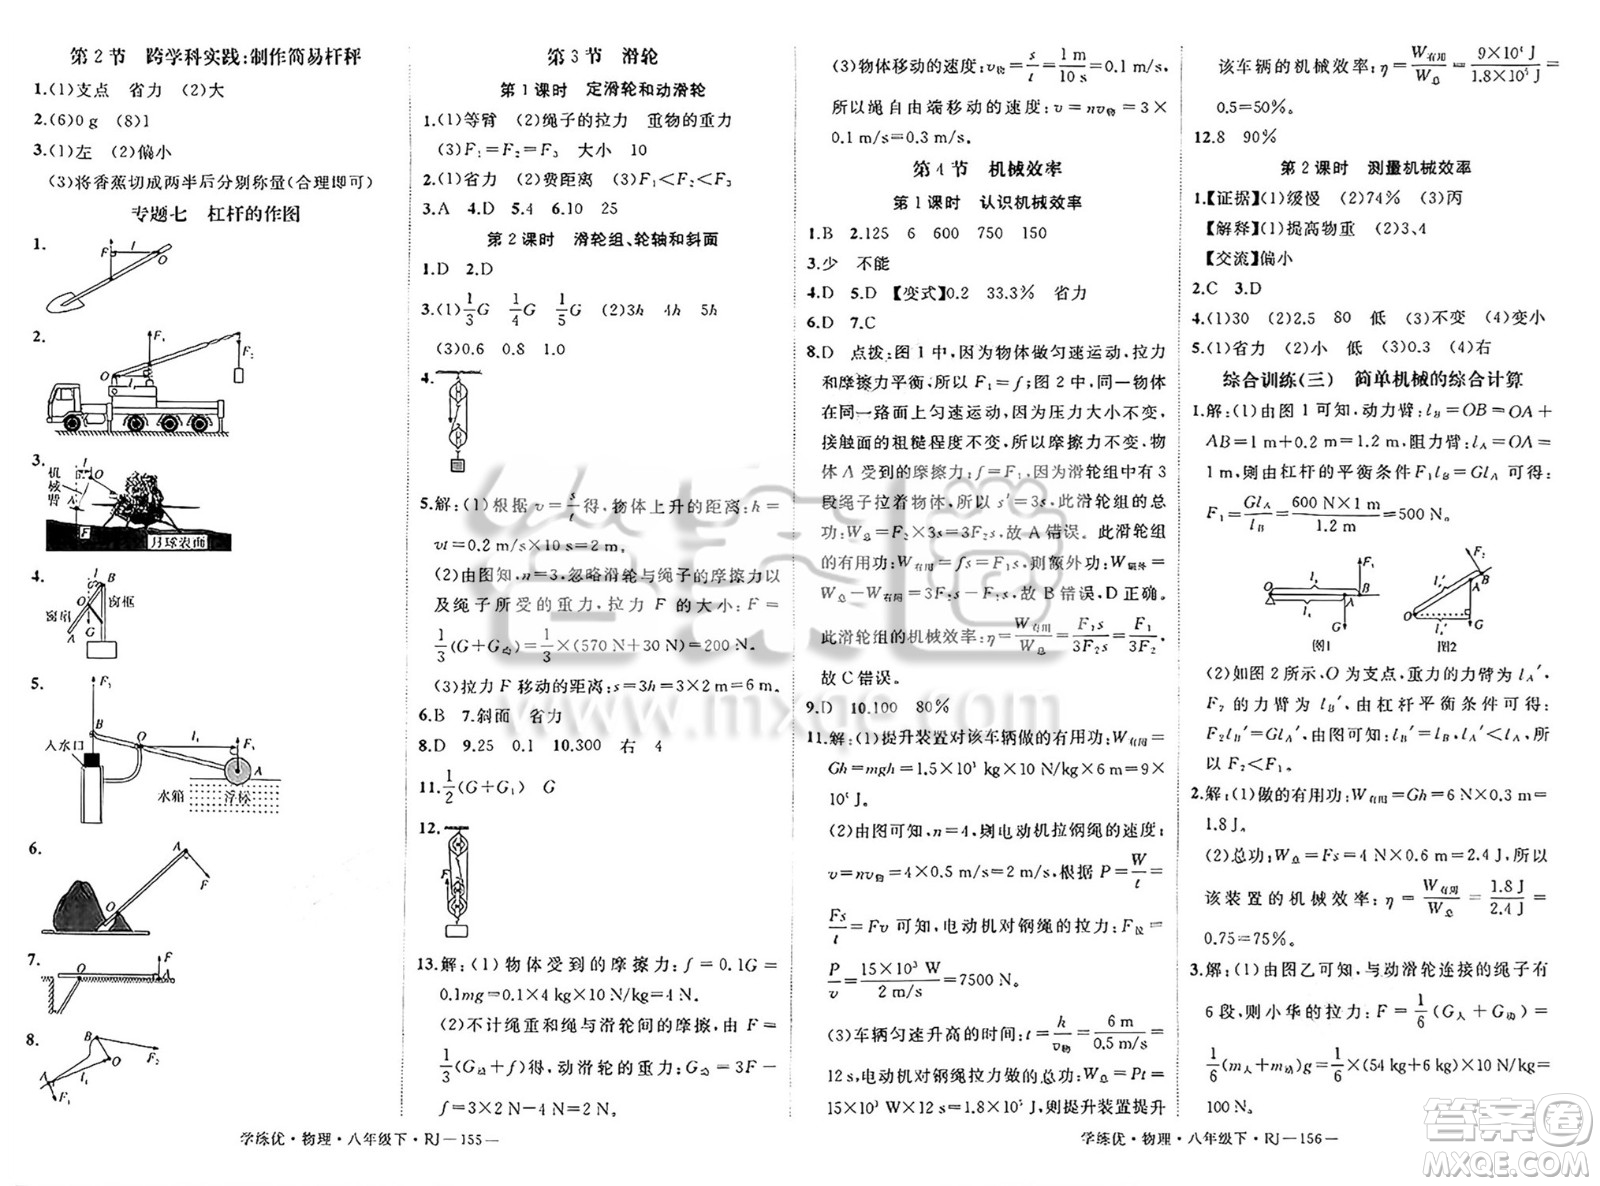 第2节 跨学科实践:制作简易杆秤
1.(1)支点 省力 (2)大
2.(6)0 g (8)1
3.(1)左 (2)偏小
(3)将香蕉切成两半后分别称量(合理即可)
专题七 杠杆的作图
1.
F l O
2.
O F₁ F₂
3.
机械臂 l O A F 月球表面
4.
l B O 窗框 窗扇 G A
5.
F₁ B O l₁ F₁ A 入水口 水箱 浮标
6.
A O F
7.
F O A
8.
B F₂ O A l₁ F₁
第3节 滑轮
第1课时 定滑轮和动滑轮
1.(1)等臂 (2)绳子的拉力 重物的重力
(3)F₁=F₂=F₃ 大小 10
2.(1)省力 (2)费距离 (3)F₁<F₂<F₃
3.A 4.D 5.4 6.10 25
第2课时 滑轮组、轮轴和斜面
1.D 2.D
3.(1)1/3G 1/4G 1/5G (2)3h 4h 5h
(3)0.6 0.8 1.0
4.
5.解:(1)根据 v=s/t得,物体上升的距离:h=
vt=0.2 m/s×10 s=2 m。
(2)由图知,n=3,忽略滑轮与绳子的摩擦力以
及绳子所受的重力,拉力 F 的大小:F=
1/3(G+G动)=1/3×(570 N+30 N)=200 N。
(3)拉力 F 移动的距离:s=3h=3×2 m=6 m。
6.B 7.斜面 省力
8.D 9.25 0.1 10.300 右 4
11.1/2(G+G₁) G
12.
13.解:(1)物体受到的摩擦力:f=0.1G=
0.1mg=0.1×4 kg×10 N/kg=4 N。
(2)不计绳重和绳与滑轮间的摩擦,由 F=
1/3(G动+f)得,动滑轮的重力:G动=3F-
f=3×2 N-4 N=2 N。
学练优·物理·八年级下·RJ—155—
(3)物体移动的速度:v物=s/t=1 m/10 s=0.1 m/s,
所以绳自由端移动的速度:v=nv物=3×
0.1 m/s=0.3 m/s。
第4节 机械效率
第1课时 认识机械效率
1.B 2.125 6 600 750 150
3.少 不能
4.D 5.D 【变式】0.2 33.3% 省力
6.D 7.C
8.D 点拨:图1中,因为物体做匀速运动,拉力
和摩擦力平衡,所以 F₁=f;图2中,同一物体
在同一路面上匀速运动,因为压力大小不变,
接触面的粗糙程度不变,所以摩擦力不变,物
体 A 受到的摩擦力:f=F₁,因为滑轮组中有3
段绳子拉着物体,所以 s′=3s,此滑轮组的总
功:W总=F₂×3s=3F₂s,故A错误。此滑轮组
的有用功:W有用=fs=F₁s,则额外功:W额外=
W总-W有用=3F₂s-F₁s,故B错误,D正确。
此滑轮组的机械效率:η=W有用/W总=F₁s/3F₂s=F₁/3F₂,
故C错误。
9.D 10.100 80%
11.解:(1)提升装置对该车辆做的有用功:W有用=
Gh=mgh=1.5×10³ kg×10 N/kg×6 m=9×
10⁴ J。
(2)由图可知,n=4,则电动机拉钢绳的速度:
v=nv物=4×0.5 m/s=2 m/s,根据 P=W/t=
Fs/t=Fv 可知,电动机对钢绳的拉力:F拉=
P/v=15×10³ W/2 m/s=7500 N。
(3)车辆匀速升高的时间:t=h/v物=6 m/0.5 m/s=
12 s,电动机对钢绳拉力做的总功:W总=Pt=
15×10³ W×12 s=1.8×10⁵ J,则提升装置提升
该车辆的机械效率:η=W有用/W总=9×10⁴ J/1.8×10⁵ J=
0.5=50%。
12.8 90%
第2课时 测量机械效率
1.【证据】(1)缓慢 (2)74% (3)丙
【解释】(1)提高物重 (2)3、4
【交流】偏小
2.C 3.D
4.(1)30 (2)2.5 80 低 (3)不变 (4)变小
5.(1)省力 (2)小 低 (3)0.3 (4)右
综合训练(三) 简单机械的综合计算
1.解:(1)由图1可知,动力臂:l_B=OB=OA+
AB=1 m+0.2 m=1.2 m,阻力臂:l_A=OA=
1 m,则由杠杆的平衡条件 F₁l_B=Gl_A 可得:
F₁=Gl_A/l_B=600 N×1 m/1.2 m=500 N。
图1 图2
(2)如图2所示,O为支点,重力的力臂为 l_A′,
F₂ 的力臂为 l_B′,由杠杆平衡条件可得:
F₂l_B′=Gl_A′,由图可知:l_B′=l_B,l_A′<l_A,所
以 F₂<F₁。
2.解:(1)做的有用功:W有用=Gh=6 N×0.3 m=
1.8 J。
(2)总功:W总=Fs=4 N×0.6 m=2.4 J,所以
该装置的机械效率:η=W有用/W总=1.8 J/2.4 J=
0.75=75%。
3.解:(1)由图乙可知,与动滑轮连接的绳子有
6段,则小华的拉力:F=1/6(G人+G动)=
1/6(m人+m动)g=1/6×(54 kg+6 kg)×10 N/kg=
100 N。
学练优·物理·八年级下·RJ—156—
www.mxqe.com
答案圈
MXQE.COM